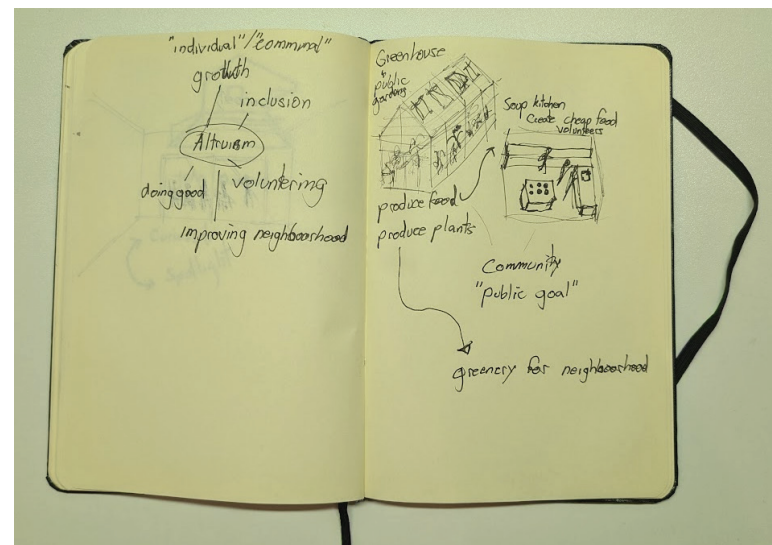 "individual"/"communal"
growth
inclusion
Altruism
doing good
voluntering
improving neighbourhood
Greenhouse
+ public
gardens
Soup kitchen
Create cheap food
volunteers
produce food
produce plants
Community
"public goal"
greenery for neighbourhood